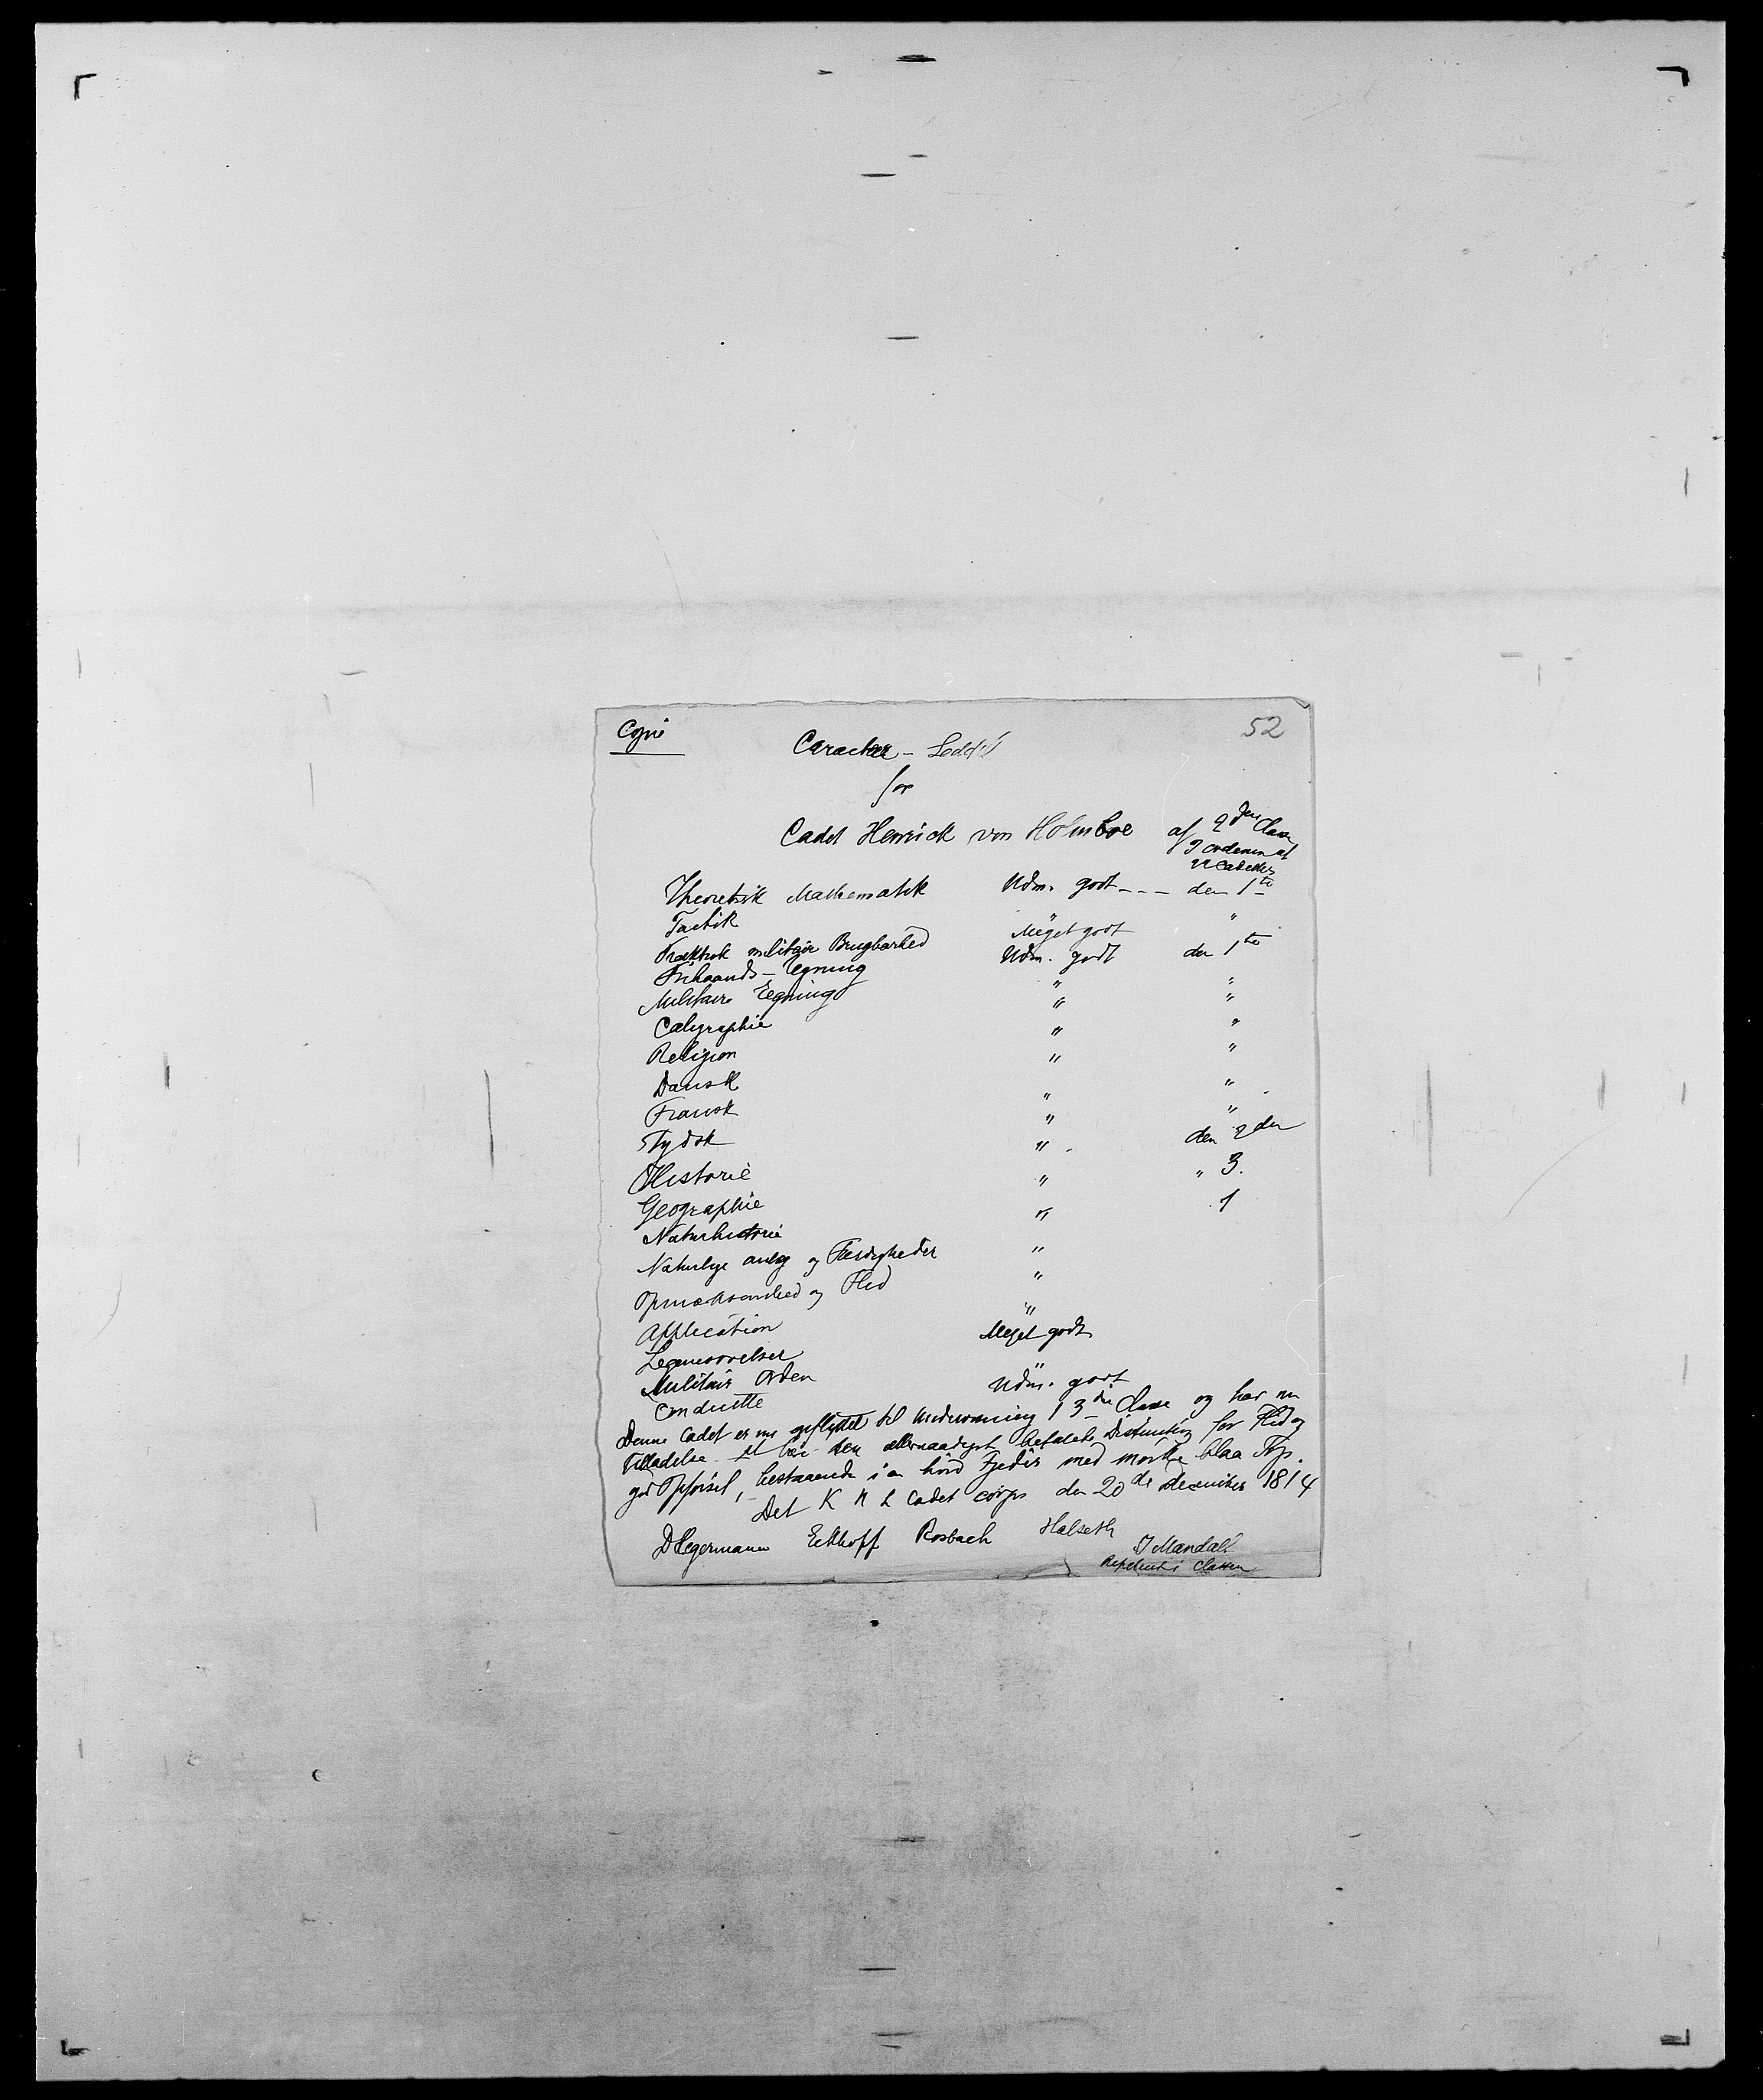 Copie
52
Caracteer - Seddel
for
Cadet Henrick von Holmboe af 2den Classe
I ordenen af
22 Cadetter
Theoretisk Mathematik Udm. godt - - - den 1te
Tactik " "
Praktisk militair Brugbarhed Meget godt
Frihaands - Tegning Udm. godt den 1te
Militair Tegning " "
Caligraphie " "
Religion " "
Dansk " "
Fransk " "
Tydsk " "
Historie " den 2den
Geographie " " 3.
Naturhistorie " 1
Naturlige anlæg og Færdigheder "
Opmærksomhed og Flid "
Application "
Legemsøvelser Meget godt
Militair Orden "
Conduitte Udm. godt
Denne Cadet er nu opflyttet til Underviisning i 3die Classe og har nu
Tilladelse at bære den allernaadigst befalede Distinction for Flid og
god Opførsel, bestaaende i en hvid Fjeder med mørke blaa Top.
Det K N L Cadet corps den 20de december 1814
D Hegermann Eckhoff Rosbach Halseth
J Mandall
Repetent i Classen